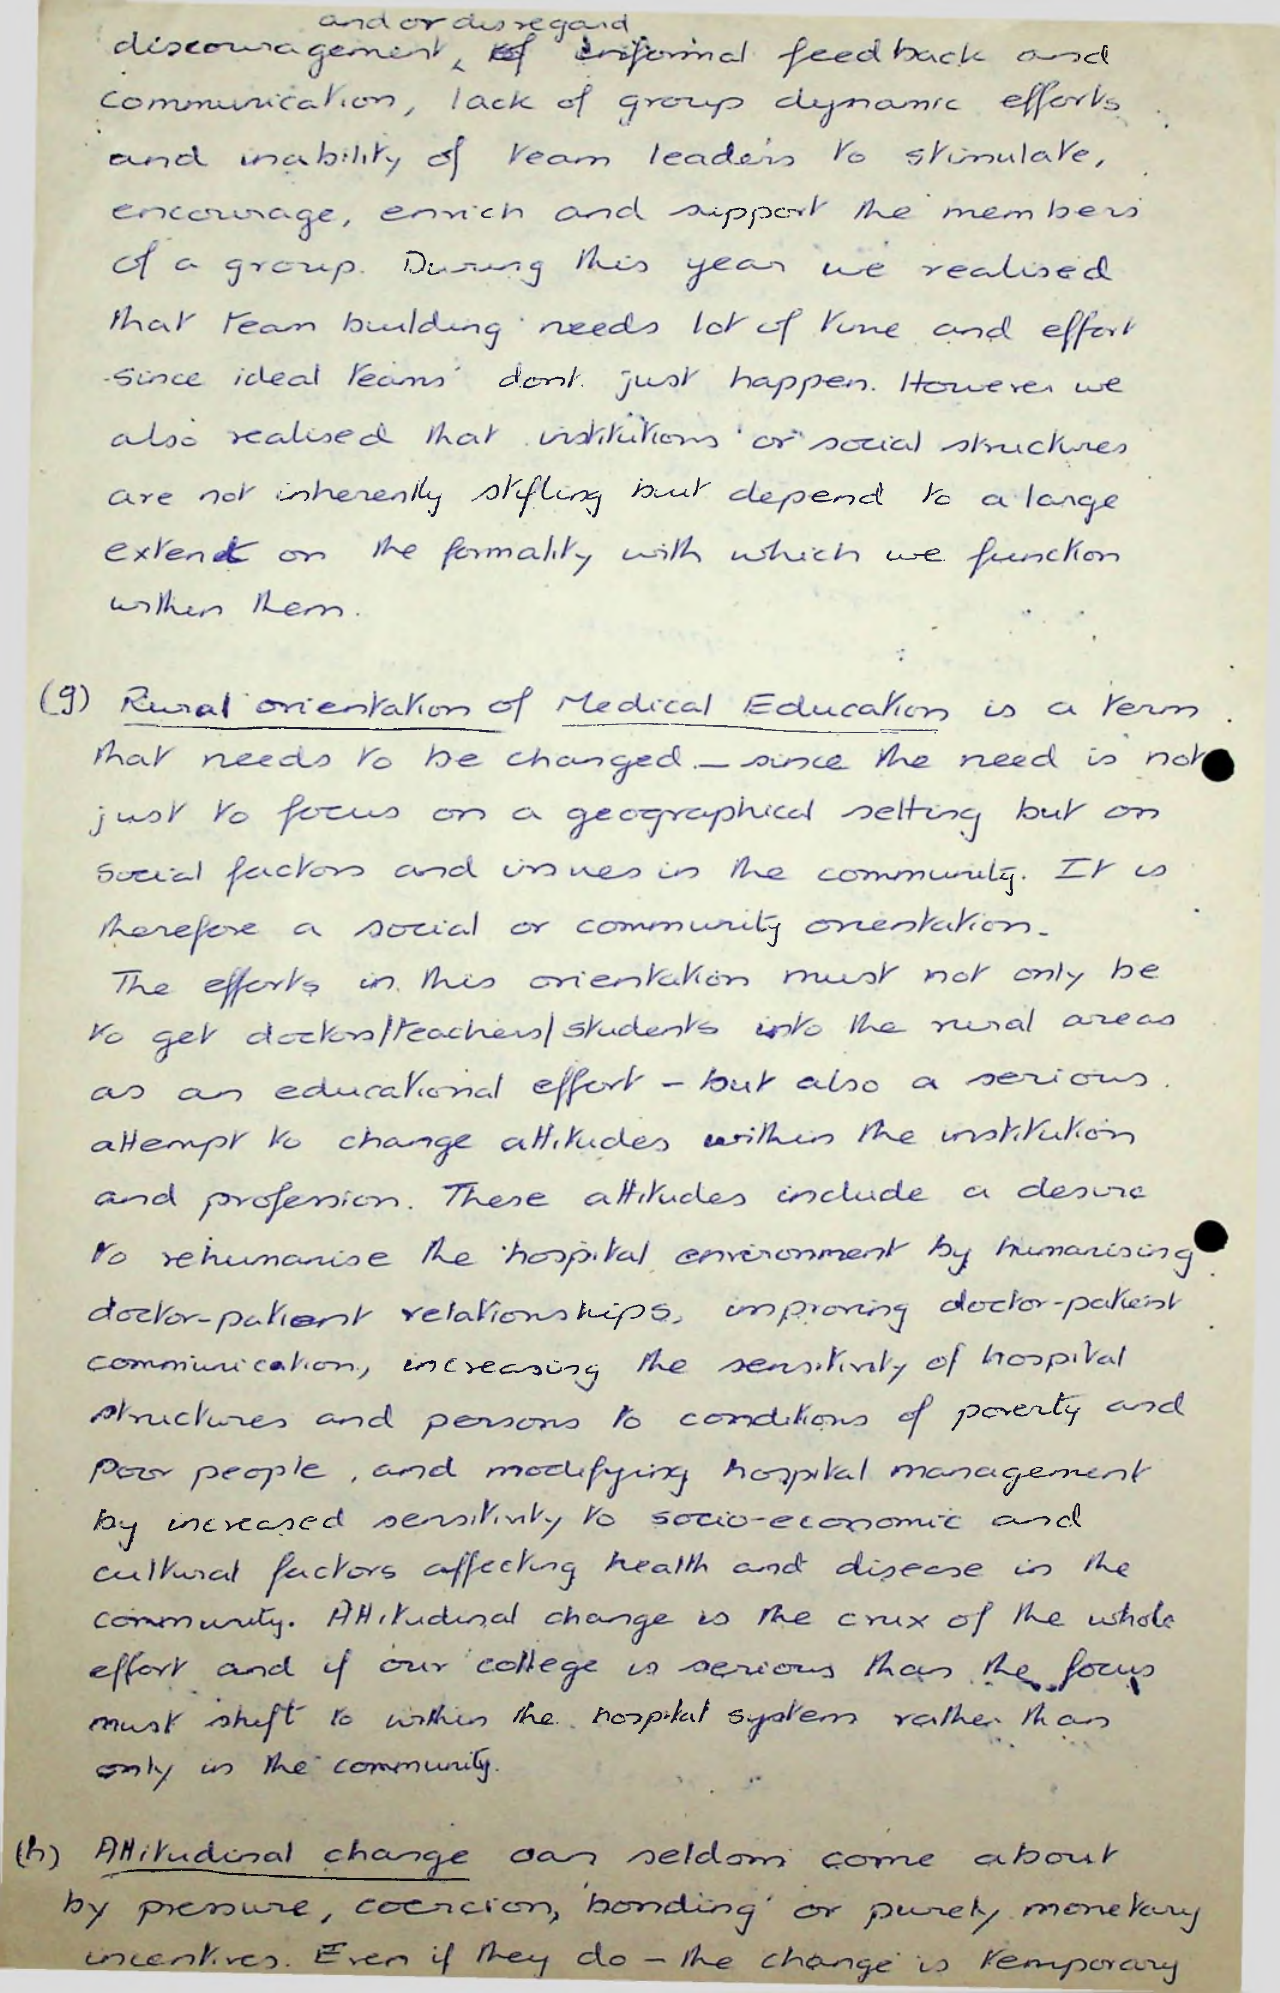 and or disregard
discouragement, of informal feedback and
communication, lack of group dynamic efforts
and inability of team leaders to stimulate,
encourage, enrich and support the members
of a group. During this year we realised
that team building needs lot of time and effort
since ideal teams' dont just happen. However we
also realised that institutions or social structures
are not inherently stifling but depend to a large
extent on the formality with which we function
within them.
(g) Rural orientation of Medical Education is a term
that needs to be changed - since the need is not
just to focus on a geographical setting but on
social factors and issues in the community. It is
therefore a social or community orientation.
The efforts in this orientation must not only be
to get doctors/teachers/students into the rural areas
as an educational effort - but also a serious
attempt to change attitudes within the institution
and profession. These attitudes include a desire
to rehumanise the hospital environment by humanising
doctor-patient relationships, improving doctor-patient
communication, increasing the sensitivity of hospital
structures and persons to conditions of poverty and
poor people, and modifying hospital management
by increased sensitivity to socio-economic and
cultural factors affecting health and disease in the
community. Attitudinal change is the crux of the whole
effort and if our college is serious than the focus
must shift to within the hospital system rather than
only in the community.
(h) Attitudinal change can seldom come about
by pressure, coercion, 'bonding' or purely monetary
incentives. Even if they do - the change is temporary